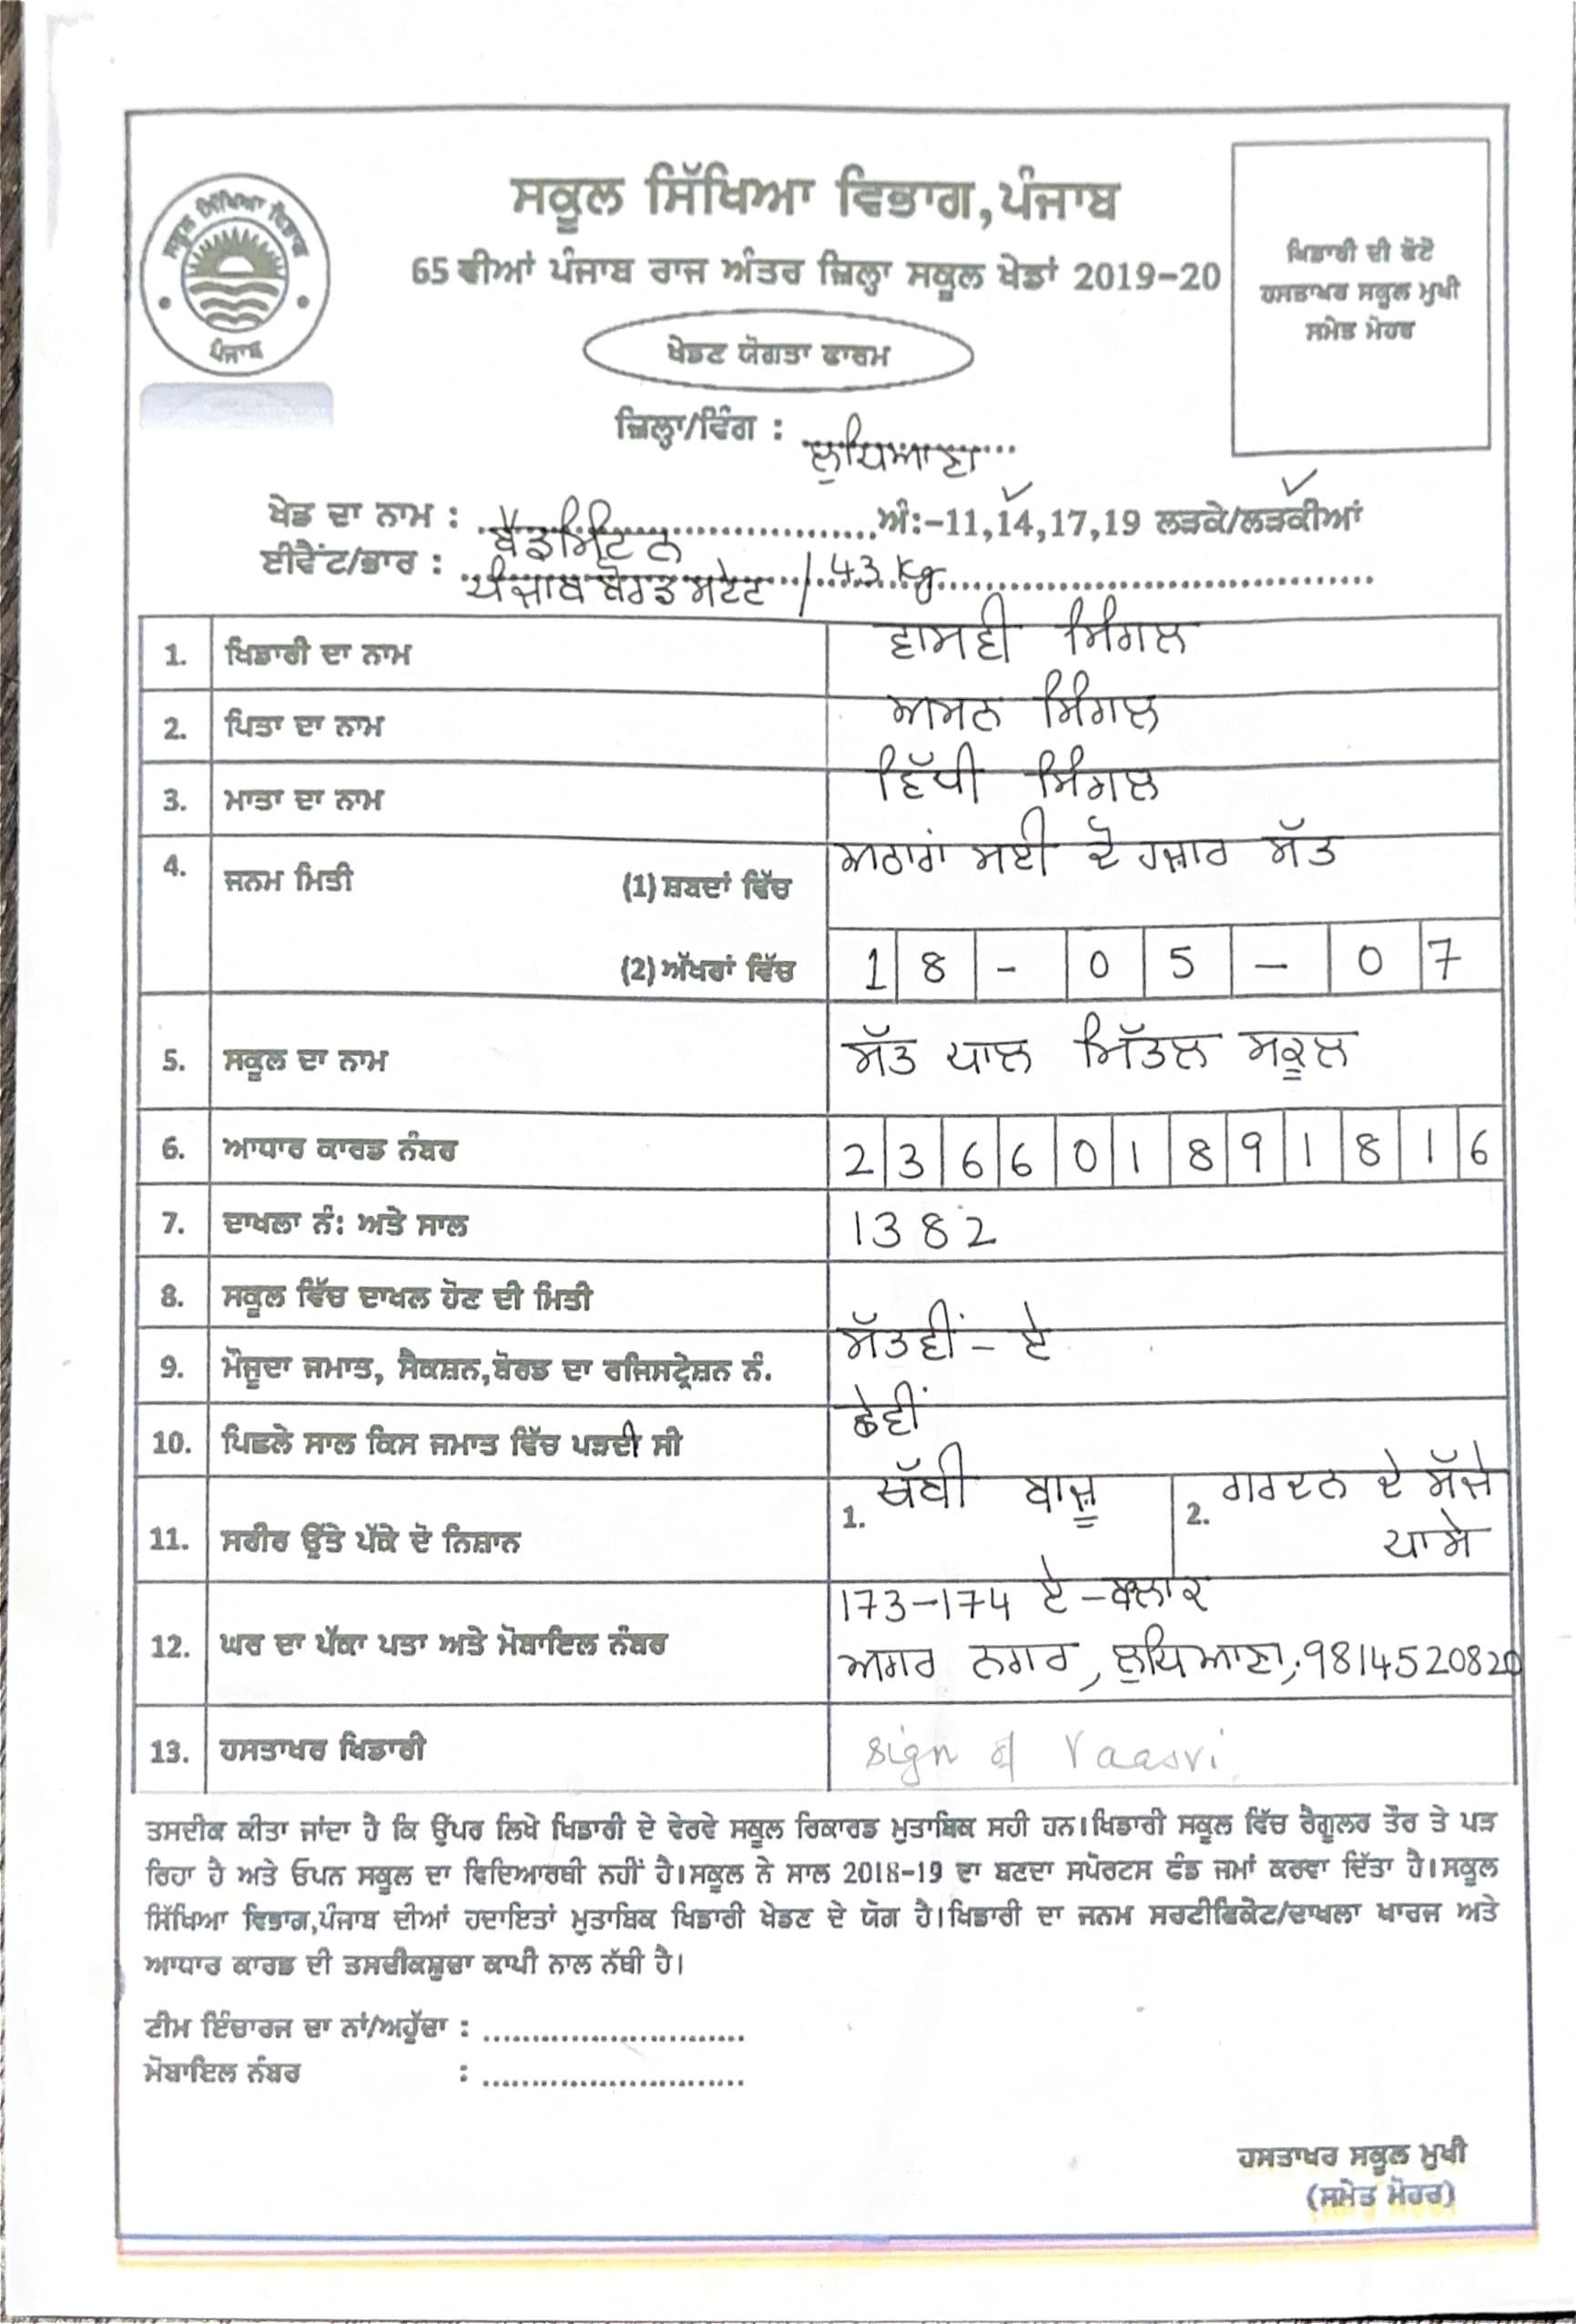 ਸਕੂਲ ਸਿੱਖਿਆ ਵਿਭਾਗ
ਪੰਜਾਬ
ਸਕੂਲ ਸਿੱਖਿਆ ਵਿਭਾਗ,ਪੰਜਾਬ
65 ਵੀਆਂ ਪੰਜਾਬ ਰਾਜ ਅੰਤਰ ਜ਼ਿਲ੍ਹਾ ਸਕੂਲ ਖੇਡਾਂ 2019-20
ਖਿਡਾਰੀ ਦੀ ਫੋਟੋ
ਹਸਤਾਖਰ ਸਕੂਲ ਮੁਖੀ
ਸਮੇਤ ਮੋਹਰ
ਖੇਡਣ ਯੋਗਤਾ ਫਾਰਮ
ਜ਼ਿਲ੍ਹਾ/ਵਿੰਗ : ਲੁਧਿਆਣਾ
ਖੇਡ ਦਾ ਨਾਮ : ਬੈਡਮਿੰਟਨ ਅੰ:-11,14,17,19 ਲੜਕੇ/ਲੜਕੀਆਂ
ਈਵੈਂਟ/ਭਾਰ : ਪੰਜਾਬ ਬੋਰਡ ਸਟੇਟ / 43 Kg
1. ਖਿਡਾਰੀ ਦਾ ਨਾਮ ਵਾਸਵੀ ਸਿੰਗਲ
2. ਪਿਤਾ ਦਾ ਨਾਮ ਅਮਨ ਸਿੰਗਲ
3. ਮਾਤਾ ਦਾ ਨਾਮ ਵਿੱਪੀ ਸਿੰਗਲ
4. ਜਨਮ ਮਿਤੀ (1) ਸ਼ਬਦਾਂ ਵਿੱਚ ਅਠਾਰਾਂ ਮਈ ਦੋ ਹਜ਼ਾਰ ਸੱਤ
(2) ਅੱਖਰਾਂ ਵਿੱਚ 18-05-07
5. ਸਕੂਲ ਦਾ ਨਾਮ ਸੱਤ ਪਾਲ ਮਿੱਤਲ ਸਕੂਲ
6. ਆਧਾਰ ਕਾਰਡ ਨੰਬਰ 236601891816
7. ਦਾਖਲਾ ਨੰ: ਅਤੇ ਸਾਲ 1382
8. ਸਕੂਲ ਵਿੱਚ ਦਾਖਲ ਹੋਣ ਦੀ ਮਿਤੀ
9. ਮੌਜੂਦਾ ਜਮਾਤ, ਸੈਕਸ਼ਨ,ਬੋਰਡ ਦਾ ਰਜਿਸਟ੍ਰੇਸ਼ਨ ਨੰ. ਸੱਤਵੀਂ - ਏ
10. ਪਿਛਲੇ ਸਾਲ ਕਿਸ ਜਮਾਤ ਵਿੱਚ ਪੜਦੀ ਸੀ ਛੇਵੀਂ
11. ਸਰੀਰ ਉੱਤੇ ਪੱਕੇ ਦੋ ਨਿਸ਼ਾਨ 1. ਖੱਬੀ ਬਾਜ਼ੂ 2. ਗਰਦਨ ਦੇ ਸੱਜੇ
ਪਾਸੇ
12. ਘਰ ਦਾ ਪੱਕਾ ਪਤਾ ਅਤੇ ਮੋਬਾਇਲ ਨੰਬਰ 173-174 ਏ-ਬਲਾਕ
ਅਗਰ ਨਗਰ, ਲੁਧਿਆਣਾ, 9814520820
13. ਹਸਤਾਖਰ ਖਿਡਾਰੀ sign of Vaasvi
ਤਸਦੀਕ ਕੀਤਾ ਜਾਂਦਾ ਹੈ ਕਿ ਉੱਪਰ ਲਿਖੇ ਖਿਡਾਰੀ ਦੇ ਵੇਰਵੇ ਸਕੂਲ ਰਿਕਾਰਡ ਮੁਤਾਬਿਕ ਸਹੀ ਹਨ।ਖਿਡਾਰੀ ਸਕੂਲ ਵਿੱਚ ਰੈਗੂਲਰ ਤੌਰ ਤੇ ਪੜ
ਰਿਹਾ ਹੈ ਅਤੇ ਓਪਨ ਸਕੂਲ ਦਾ ਵਿਦਿਆਰਥੀ ਨਹੀਂ ਹੈ।ਸਕੂਲ ਨੇ ਸਾਲ 2018-19 ਦਾ ਬਣਦਾ ਸਪੋਰਟਸ ਫੰਡ ਜਮਾਂ ਕਰਵਾ ਦਿੱਤਾ ਹੈ।ਸਕੂਲ
ਸਿੱਖਿਆ ਵਿਭਾਗ,ਪੰਜਾਬ ਦੀਆਂ ਹਦਾਇਤਾਂ ਮੁਤਾਬਿਕ ਖਿਡਾਰੀ ਖੇਡਣ ਦੇ ਯੋਗ ਹੈ।ਖਿਡਾਰੀ ਦਾ ਜਨਮ ਸਰਟੀਫਿਕੇਟ/ਦਾਖਲਾ ਖਾਰਜ ਅਤੇ
ਆਧਾਰ ਕਾਰਡ ਦੀ ਤਸਦੀਕਸ਼ੁਦਾ ਕਾਪੀ ਨਾਲ ਨੱਥੀ ਹੈ।
ਟੀਮ ਇੰਚਾਰਜ ਦਾ ਨਾਂ/ਅਹੁੱਦਾ :
ਮੋਬਾਇਲ ਨੰਬਰ :
ਹਸਤਾਖਰ ਸਕੂਲ ਮੁਖੀ
(ਸਮੇਤ ਮੋਹਰ)